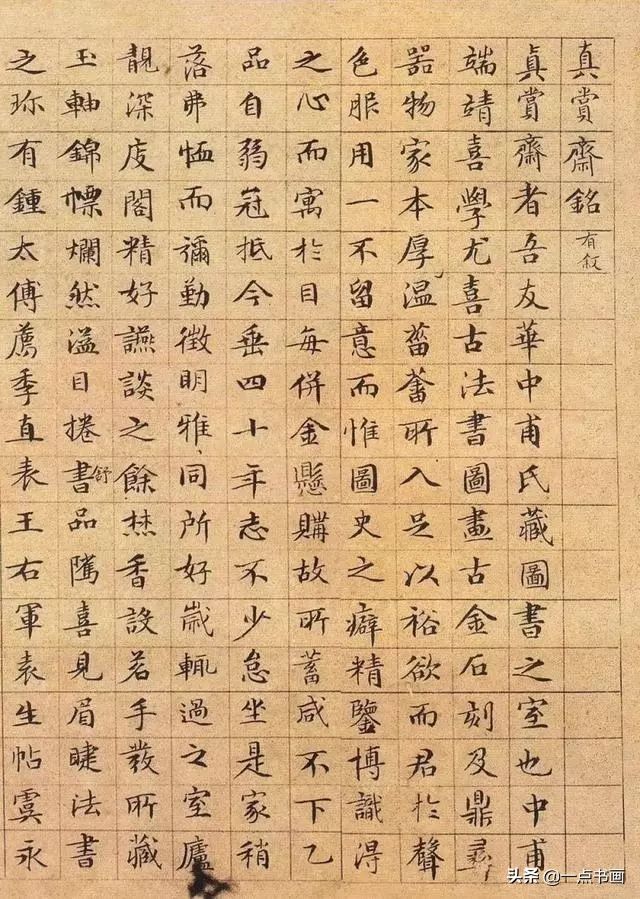 真賞齋銘 有叙
真賞齋者吾友華中甫氏藏圖書之室也中甫
端靖喜學尤喜古法書圖畫古金石刻及鼎彞
器物家本厚溫菑畬所入足以裕欲而君於聲
色服用一不留意而惟圖史之癖精鑒博識得
之心而寓於目每併金懸購故所蓄咸不下乙
品自弱冠抵今垂四十年志不少怠坐是家稍
落弗恤而彌勤徵明雅同所好歲輒過之室廬
靚深庋閣精好讌談之餘焚香設茗手發所藏
玉軸錦幖爛然溢目捲書舒品騭喜見眉睫法書
之珎有鍾太傅薦季直表王右軍袁生帖虞永
头条 @一点书画